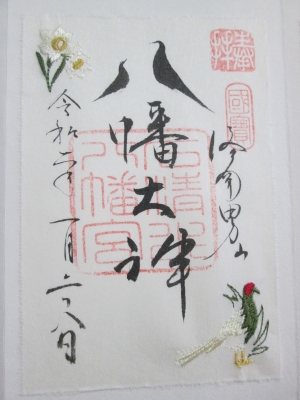 奉拝
國寶
洛南男山
八幡大神
石清水
八幡宮
令和二年一月二十八日